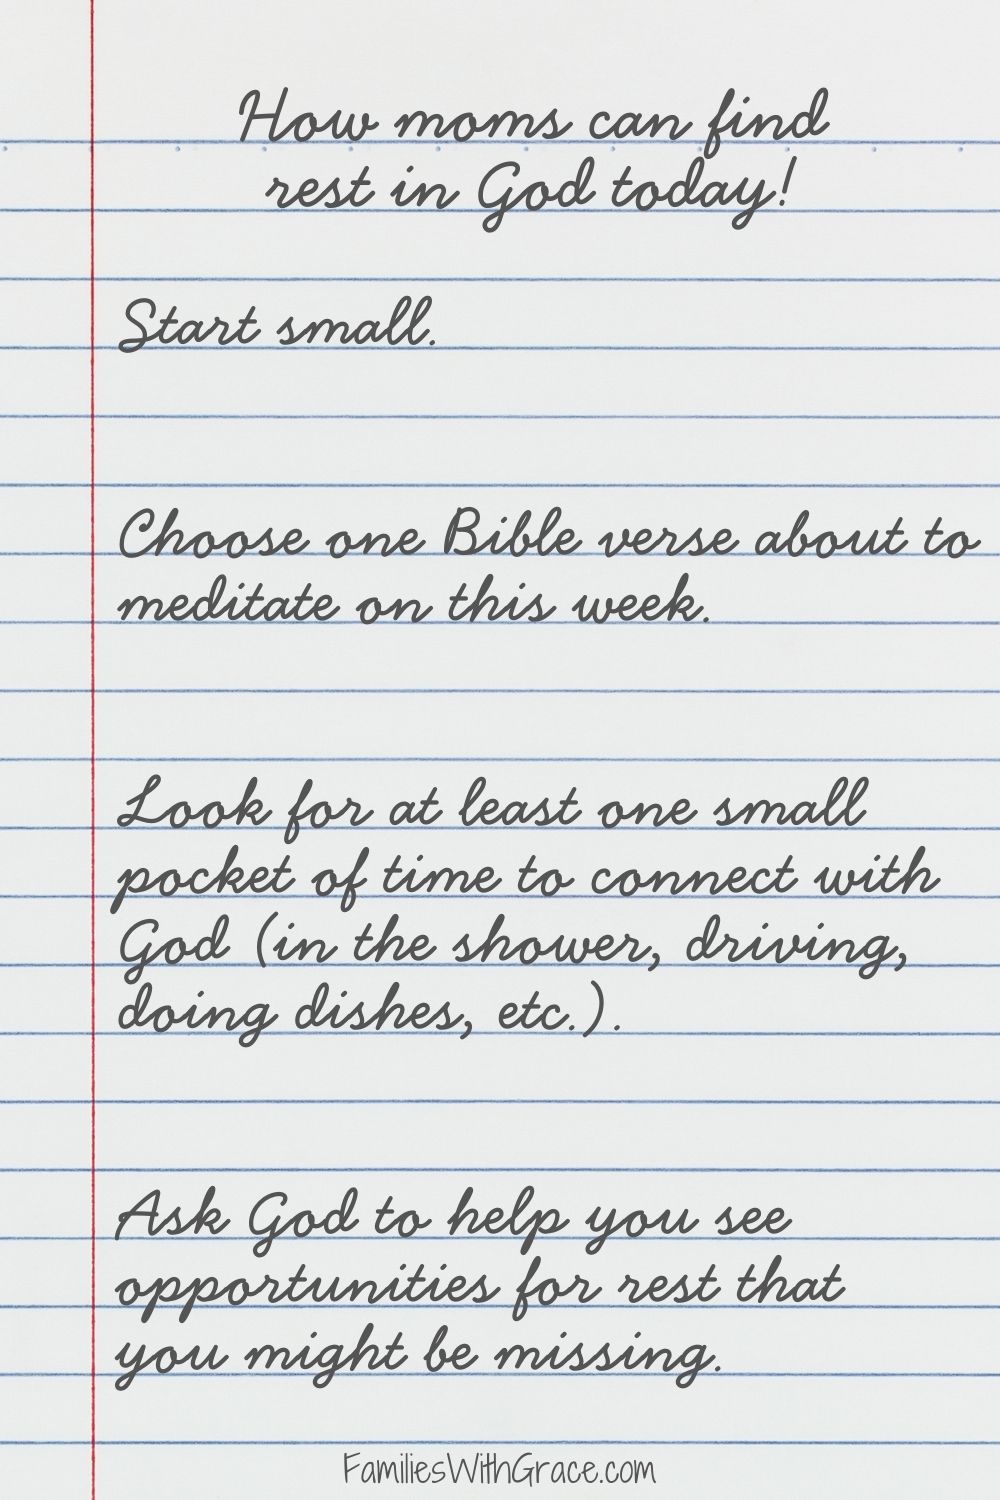 How moms can find
rest in God today!
Start small.
Choose one Bible verse about to
meditate on this week.
Look for at least one small
pocket of time to connect with
God (in the shower, driving,
doing dishes, etc.).
Ask God to help you see
opportunities for rest that
you might be missing.
FamiliesWithGrace.com